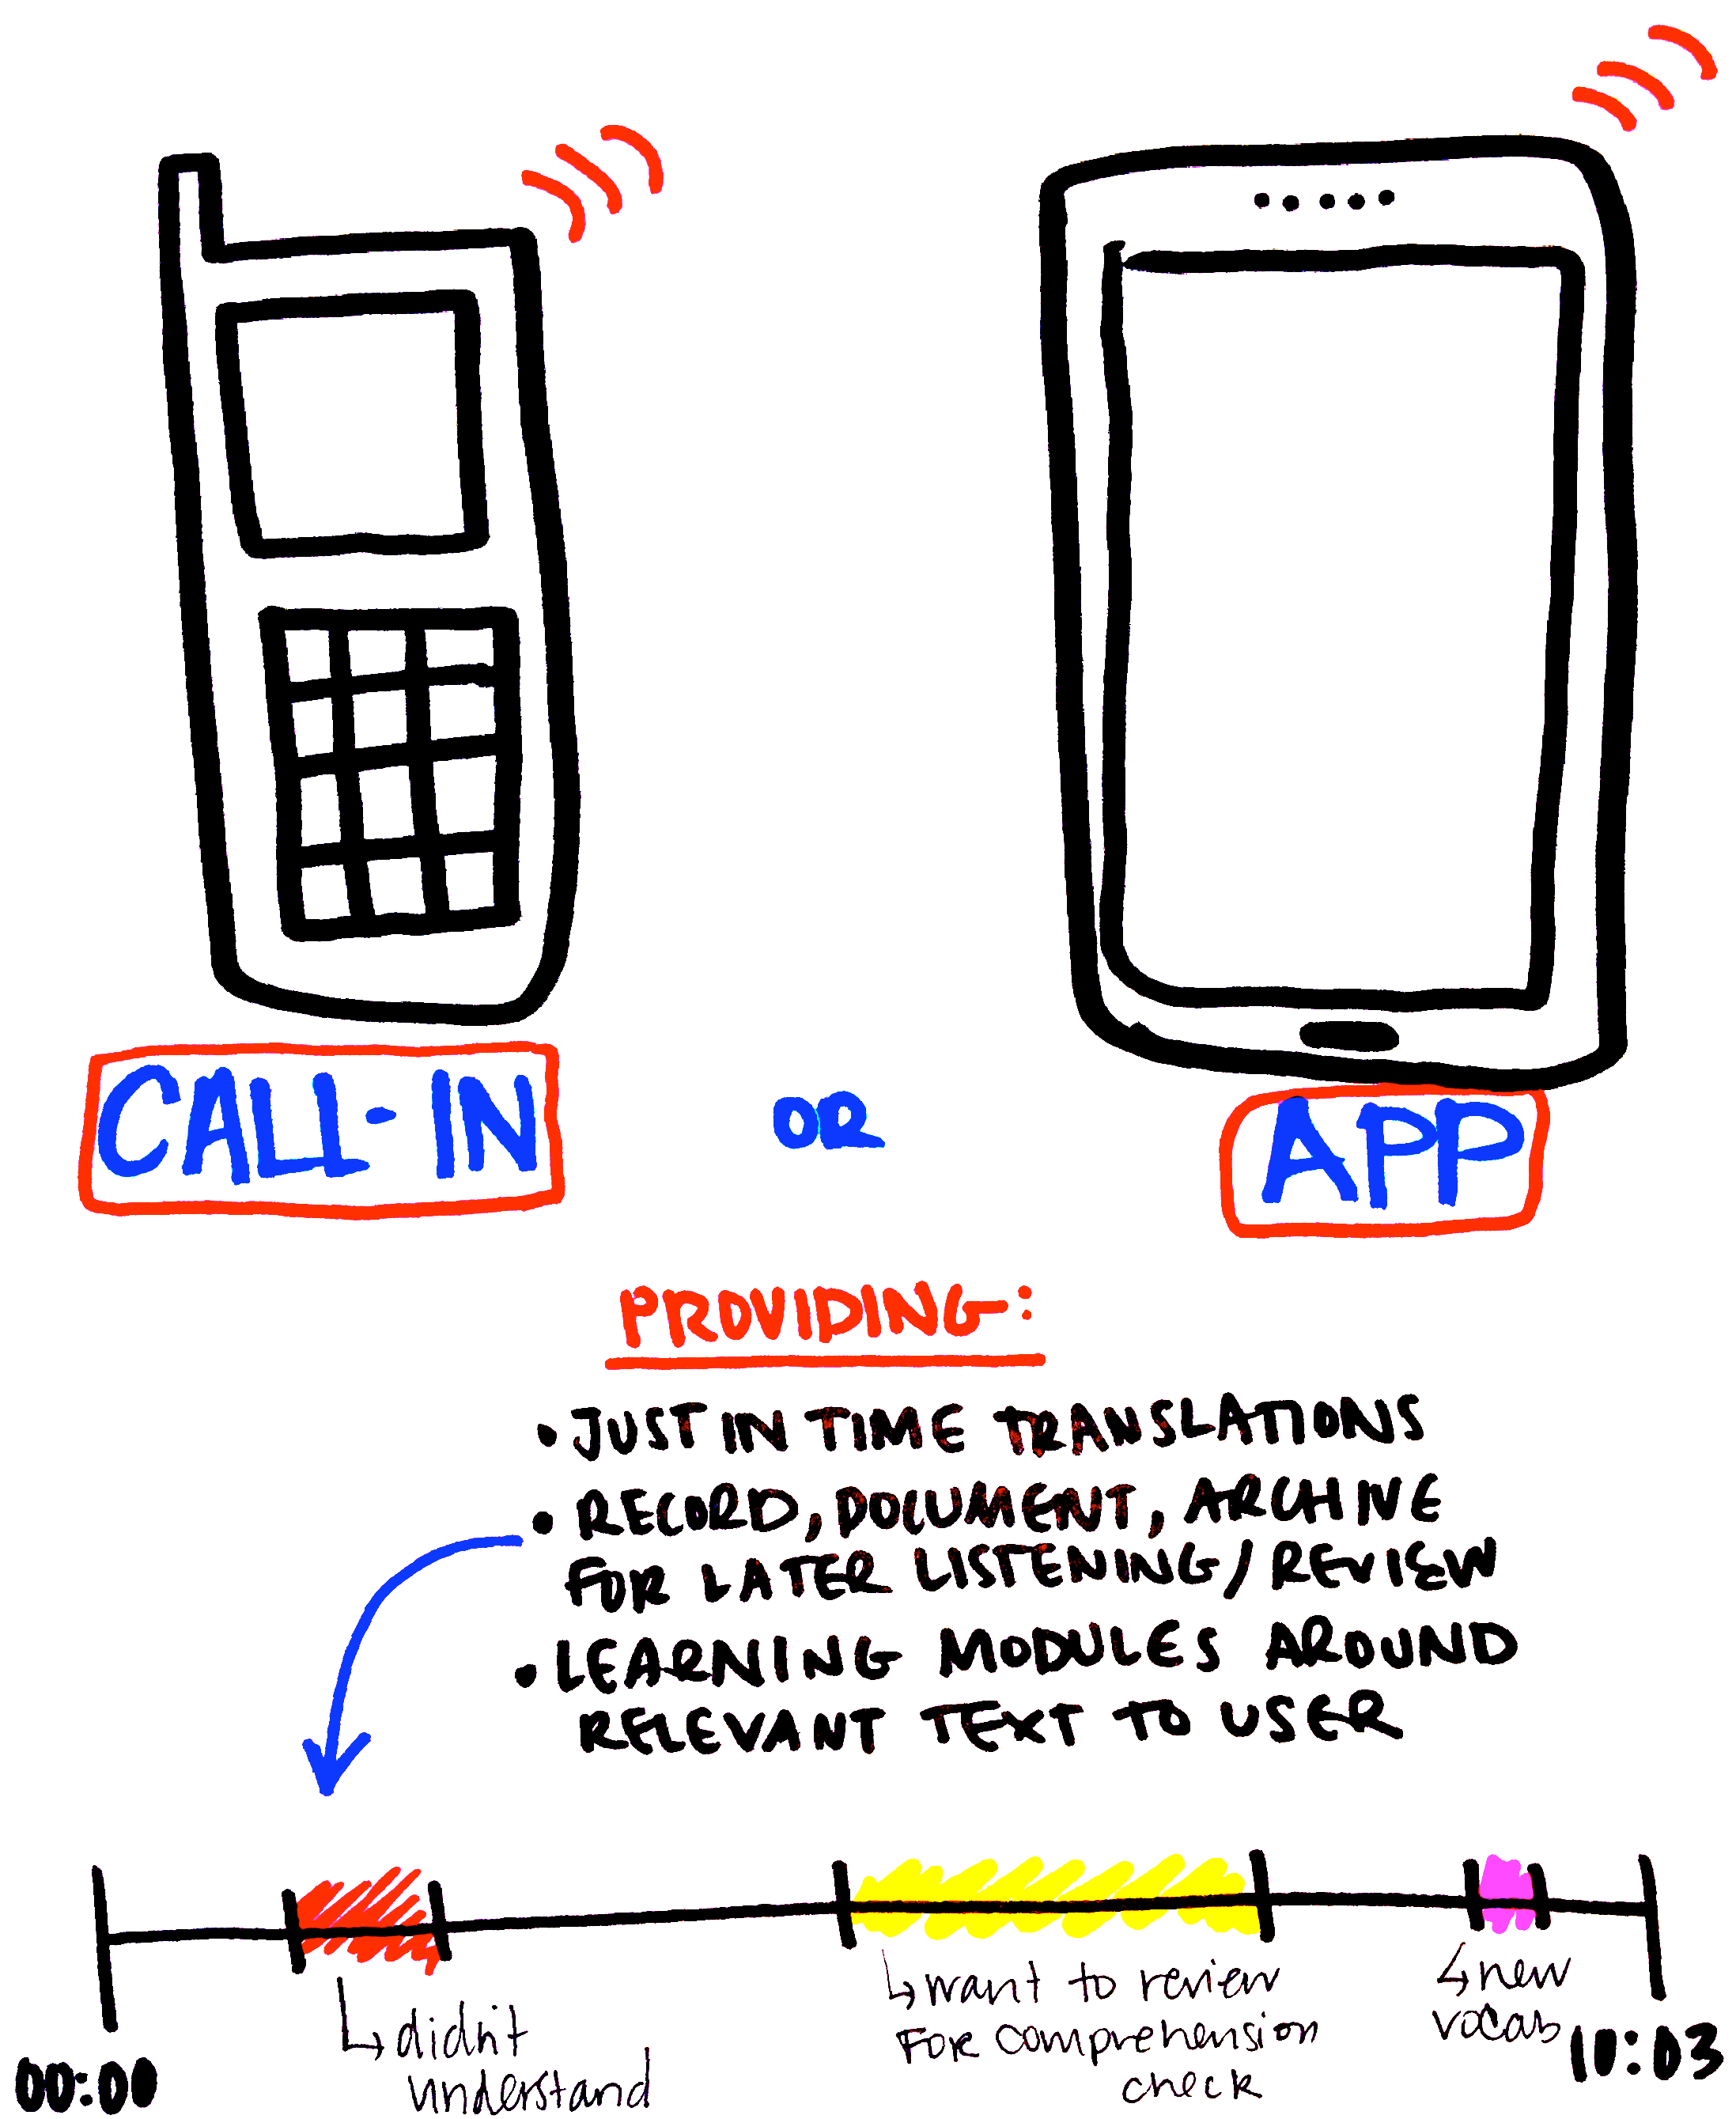 CALL-IN OR APP
PROVIDING:
• JUST IN TIME TRANSLATIONS
• RECORD, DOCUMENT, ARCHIVE
FOR LATER LISTENING/REVIEW
• LEARNING MODULES AROUND
RELEVANT TEXT TO USER
↳ didn't
understand
↳ want to review
for comprehension
check
↳ new
vocab
00:00
10:03